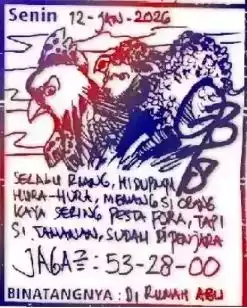 Senin 12-JAN-2026
SELALU RIANG, HIDUPNYA
HURA-HURA, MEMANG SI ORANG
KAYA SERING PESTA FORA, TAPI
SI TAHANAN, SUDAH DIPENJARA
JAGA²: 53-28-00
BINATANGNYA: DI RUMAH ABU